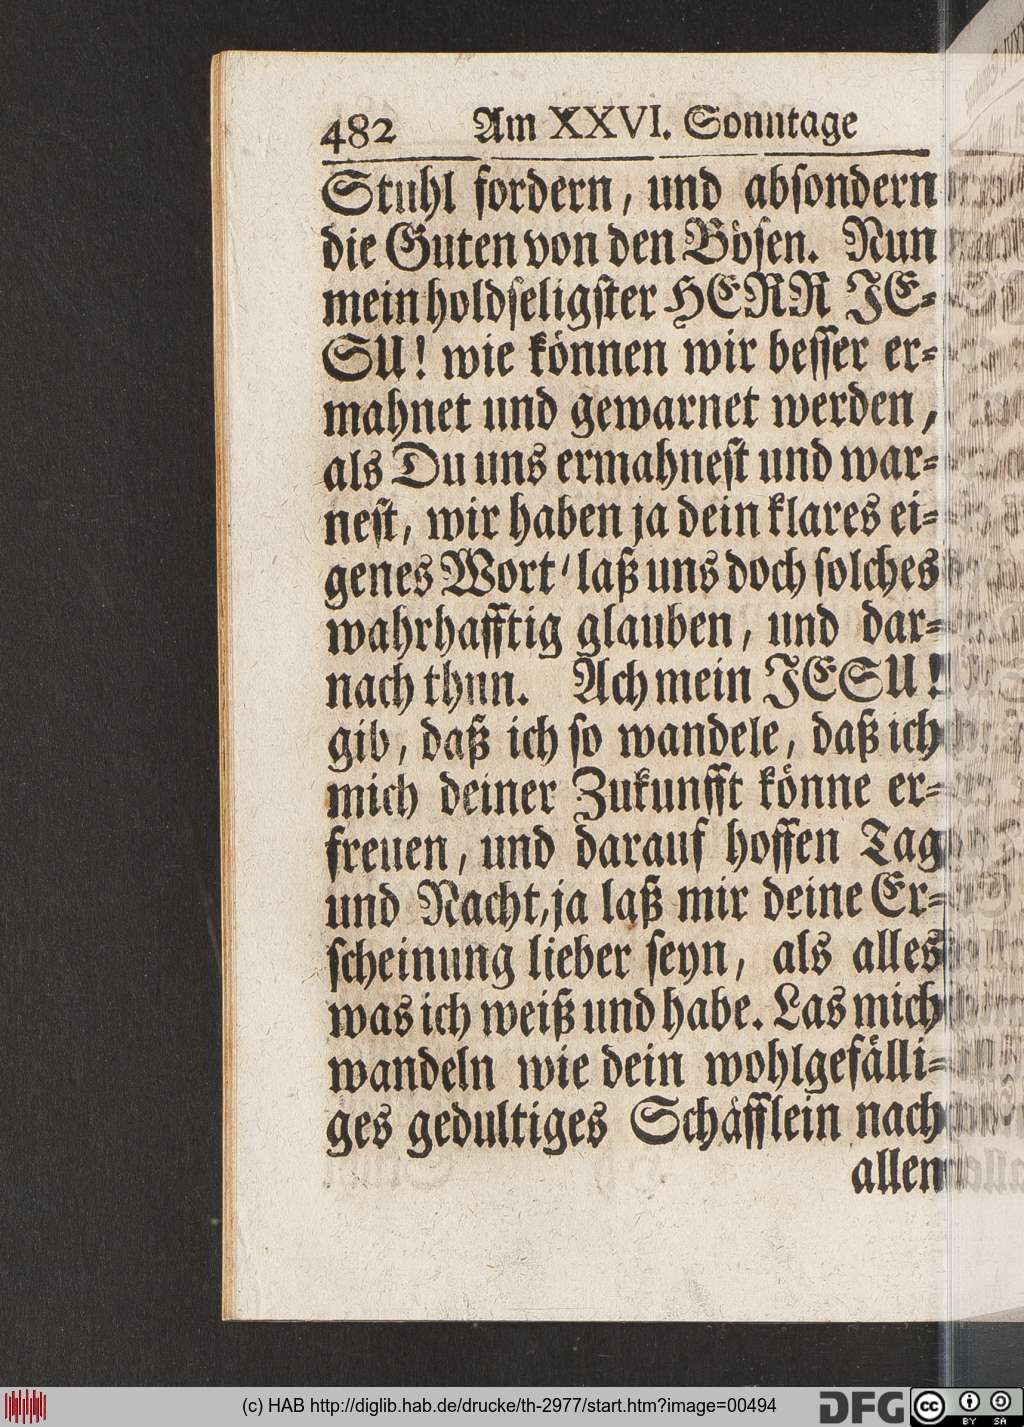 482 Am XXVI. Sonntage
Stuhl fordern, und absondern
die Guten von den Bösen. Nun
mein holdseligster HERR JE-
SU! wie können wir besser er-
mahnet und gewarnet werden,
als Du uns ermahnest und war-
nest, wir haben ja dein klares ei-
genes Wort / laß uns doch solches
wahrhafftig glauben, und dar-
nach thun. Ach mein JESU!
gib, daß ich so wandele, daß ich
mich deiner Zukunfft könne er-
freuen, und darauf hoffen Tag
und Nacht, ja laß mir deine Er-
scheinung lieber seyn, als alles
was ich weiß und habe. Las mich
wandeln wie dein wohlgefälli-
ges gedultiges Schäfflein nach
allen
(c) HAB http://diglib.hab.de/drucke/th-2977/start.htm?image=00494
DFG
cc BY SA